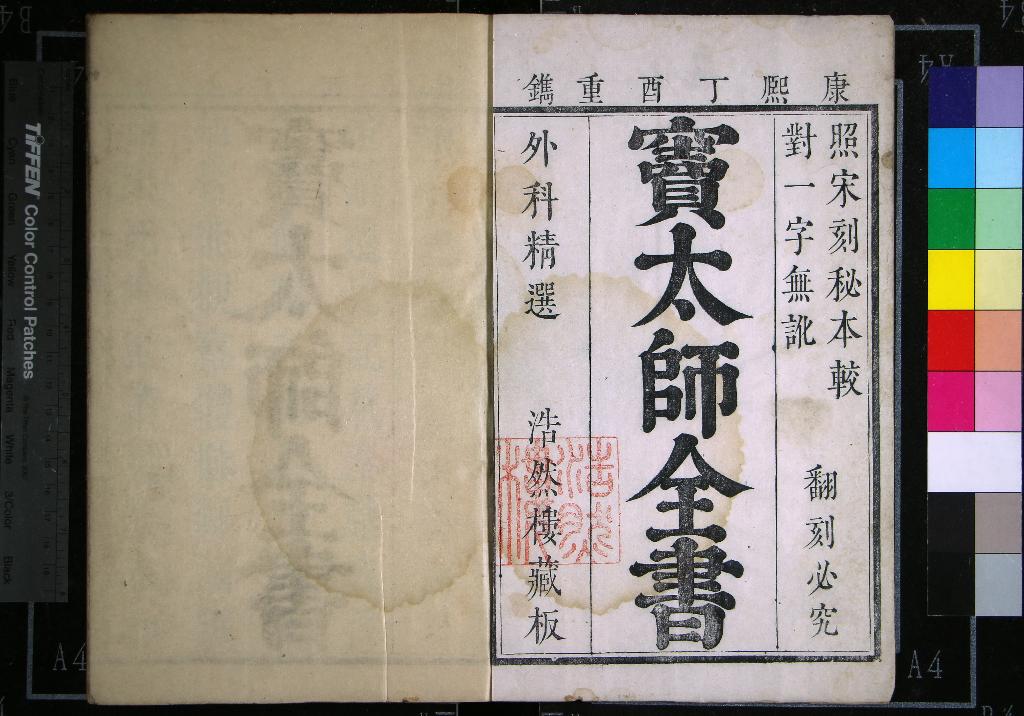 康熙丁酉重鐫
照宋刻秘本較
對一字無訛
翻刻必究
竇太師全書
外科精選
浩然樓藏板
浩然樓
TIFFEN Color Control Patches
Blue
Cyan
Green
Yellow
Red
Magenta
White
3/Color
Black
A4
A4
A4